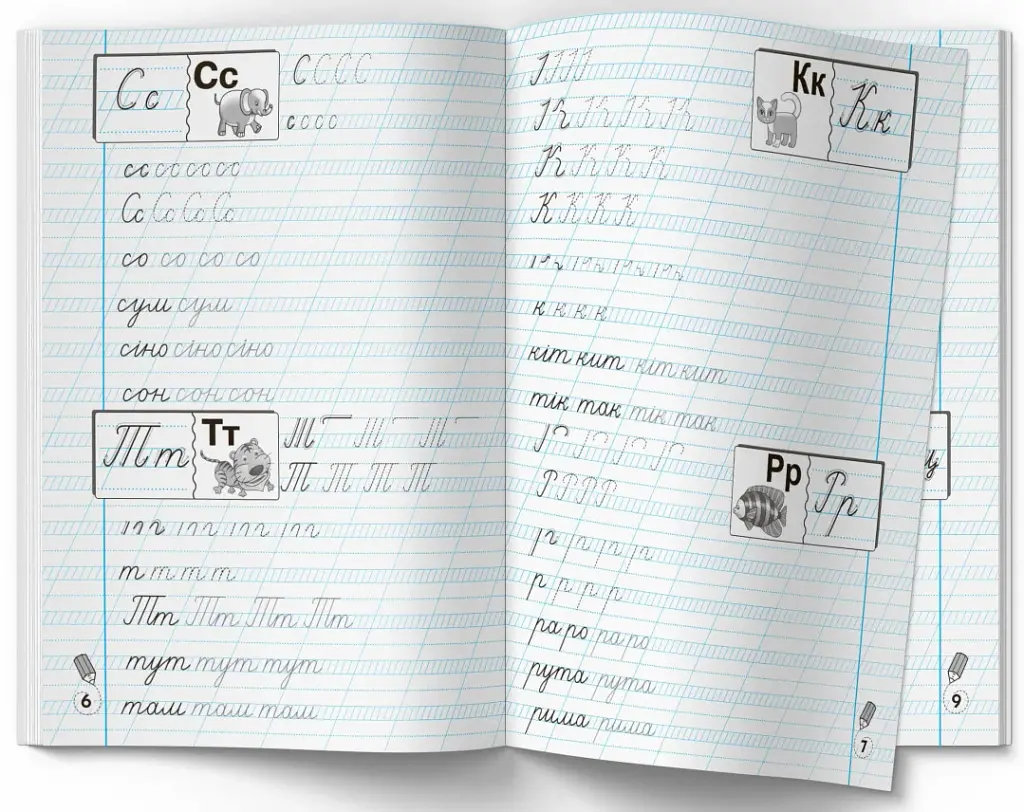 Сс Сс С С С С
с с с с
сс сс сс сс
Сс Сс Сс Сс
со со со со
сум сум
сіно сіно сіно
сон сон сон
Тт Тт
Т Т Т Т
т т т т
Тт Тт Тт Тт
тут тут тут
там там там
6
Кк Кк
К К К К
К К К К
к к к к
кіт кит кіт кит
тік так тік так
Рр Рр
Р Р Р Р
р р р р
ра ро ра ро
рута рута
рима рима
7
9